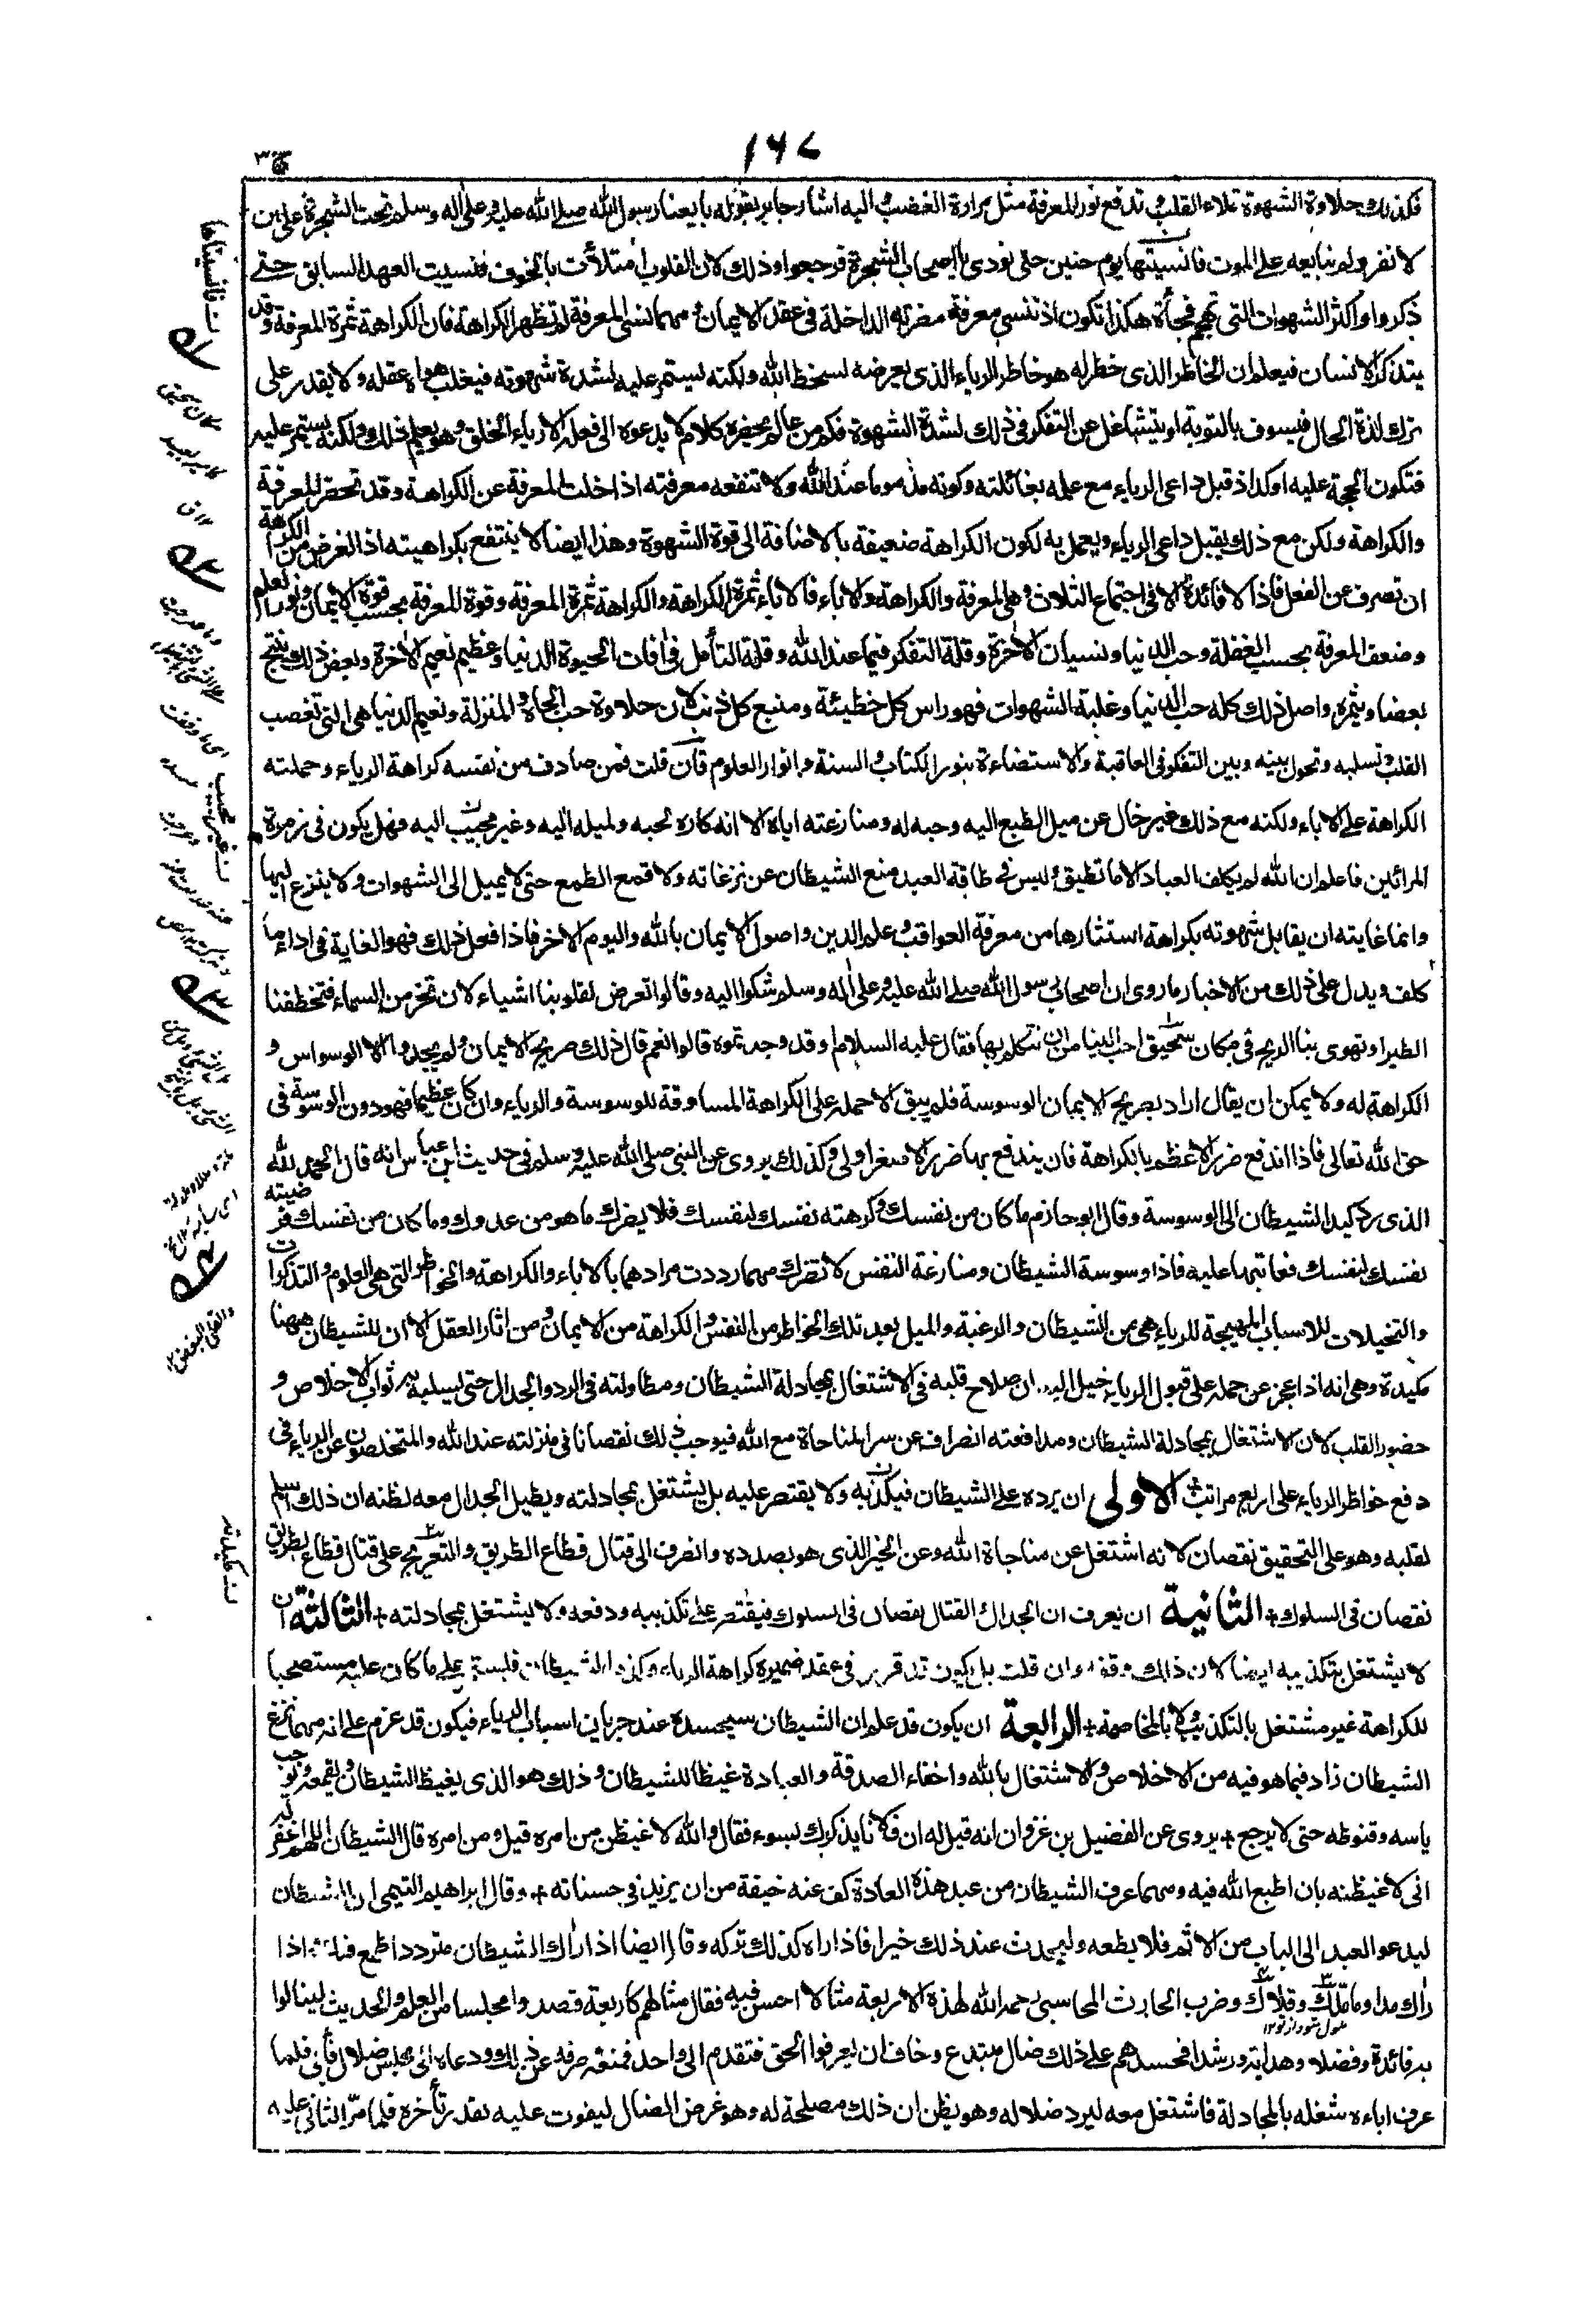 ١٦٧
فكذلك حلاوة الشهوة تملاء القلب و تدفع نور المعرفة مثل مرارة الغضب و اليه اشار جابر بقوله بايعنا رسول الله صلى الله عليه و على اله و سلم تحت الشجرة على ان
لا نفر و لم نبايعه على الموت فانسيتها يوم حنين حتى نودى يا اصحاب الشجرة فرجعوا و ذلك لان القلوب امتلأت بالخوف فنسيت العهد السابق حتى
ذكروا و اكثر الشهوات التى تهجم فجأة هكذا تكون اذ تنسى معرفة مضرته الداخلة فى عقد الايمان و مهما نسى المعرفة لم تظهر الكراهة فان الكراهة ثمرة المعرفة و قد
يتذكر الانسان فيعلم ان الخاطر الذى خطر له هو خاطر الرياء الذى يعرضه لسخط الله و لكنه يستمر عليه لشدة شهوته فيغلب هواه عقله و لا يقدر على
ترك لذة الحال فيسوف بالتوبة او يتشاغل عن التفكر فى ذلك لشدة الشهوة فكم من عالم يحضره كلام لا يدعوه الى فعله الا رياء الخلق و هو يعلم ذلك و لكنه يستمر عليه
فتكون الحجة عليه اوكد اذ قبل داعى الرياء مع علمه بغائلته و كونه مذموما عند الله و لا تنفعه معرفته اذا خلت المعرفة عن الكراهة و قد تحضر المعرفة
و الكراهة و لكن مع ذلك يقبل داعى الرياء و يعمل به لكون الكراهة ضعيفة بالاضافة الى قوة الشهوة و هذا ايضا لا ينتفع بكراهيته اذ الغرض من الكراهة
ان تصرف عن الفعل فاذا لا فائدة الا فى اجتماع الثلاث و هى المعرفة و الكراهة و الاباء فالاباء ثمرة الكراهة و الكراهة ثمرة المعرفة و قوة المعرفة بحسب قوة الايمان و نور العلم
و ضعف المعرفة بحسب الغفلة و حب الدنيا و نسيان الاخرة و قلة التفكر فيما عند الله و قلة التأمل فى افات الحيوة الدنيا و عظيم نعيم الاخرة و بعض ذلك ينتج
بعضا و يثمره و اصل ذلك كله حب الدنيا و غلبة الشهوات فهو راس كل خطيئة و منبع كل ذنب لان حلاوة حب الجاه و المنزلة و نعيم الدنيا هى التى تغصب
القلب و تسلبه و تحول بينه و بين التفكر فى العاقبة و الاستضاءة بنور الكتاب و السنة و انوار العلوم فان قلت فمن صادف من نفسه كراهة الرياء و حملته
الكراهة على الاباء و لكنه مع ذلك غير خال عن ميل الطبع اليه و حبه له و منازعته اياه الا انه كاره لحبه و لميله اليه و غير مجيب اليه فهل يكون فى زمرة
المرائين فاعلم ان الله لم يكلف العباد الا ما تطيق و ليس فى طاقة العبد منع الشيطان عن نزغاته و لا قمع الطمع حتى لا يميل الى الشهوات و لا ينزع اليها
و انما غايته ان يقابل شهوته بكراهة استثارها من معرفة العواقب و علم الدين و اصول الايمان بالله و اليوم الاخر فاذا فعل ذلك فهو الغاية فى اداء ما
كلف و يدل على ذلك من الاخبار ما روى ان اصحاب رسول الله صلى الله عليه و على اله و سلم شكوا اليه و قالوا تعرض لقلوبنا اشياء لان نخر من السماء فتخطفنا
الطير او تهوى بنا الريح فى مكان سحيق احب الينا من ان نتكلم بها فقال عليه السلام او قد وجدتموه قالوا نعم قال ذلك صريح الايمان و لم يجدوا الا الوسواس و
الكراهة له و لا يمكن ان يقال اراد بصريح الايمان الوسوسة فلم يبق الا حمله على الكراهة المساوقة للوسوسة و الرياء و ان كان عظيما فهو دون الوسوسة فى
حق الله تعالى فاذا اندفع ضرر الاعظم بالكراهة فان يندفع بها ضرر الاصغر اولى و كذلك يروى عن النبى صلى الله عليه و سلم فى حديث ابن عباس انه قال الحمد لله
الذى رد كيد الشيطان الى الوسوسة و قال ابو حازم ما كان من نفسك و كرهته نفسك لنفسك فلا يضرك ما هو من عدوك و ما كان من نفسك فرضيته
نفسك لنفسك فعاتبها عليه فاذا وسوسة الشيطان و منازعة النفس لا تضرك مهما رددت مرادهما بالاباء و الكراهة و الخواطر التى هى العلوم و التذكرات
و التخيلات للاسباب المهيجة للرياء هى من الشيطان و الرغبة و الميل بعد تلك الخواطر من النفس و الكراهة من الايمان و من اثار العقل الا ان للشيطان ههنا
مكيدة و هى انه اذا عجز عن حمله على قبول الرياء خيل اليه ان صلاح قلبه فى الاشتغال بمجادلة الشيطان و مطاولته فى الرد و الجدال حتى يسلبه ثواب الاخلاص و
حضور القلب لان الاشتغال بمجادلة الشيطان و مدافعته انصراف عن سر المناجاة مع الله فيوجب ذلك نقصانا فى منزلته عند الله و المتخلصون عن الرياء فى
دفع خواطر الرياء على اربع مراتب الاولى ان يرده على الشيطان فيكذبه و لا يقتصر عليه بل يشتغل بمجادلته و يطيل الجدال معه لظنه ان ذلك اسلم
لقلبه و هو على التحقيق نقصان لانه اشتغل عن مناجاة الله و عن الخير الذى هو بصدده و انصرف الى قتال قطاع الطريق و التعريج على قتال قطاع الطريق
نقصان فى السلوك + الثانية ان يعرف ان الجدال و القتال نقصان فى السلوك فيقتصر على تكذيبه و دفعه و لا يشتغل بمجادلته + الثالثة ان
لا يشتغل بتكذيبه ايضا لان ذلك وقفة و ان قلت بل يكون قد قرر فى عقد ضميره كراهة الرياء و كذب الشيطان فليستمر على ما كان عليه مستصحبا
للكراهة غير مشتغل بالتكذيب و لا بالمخاصمة + الرابعة ان يكون قد علم ان الشيطان سيحسده عند جريان اسباب الرياء فيكون قد عزم على انه مهما نزغ
الشيطان زاد فيما هو فيه من الاخلاص و الاشتغال بالله و اخفاء الصدقة و العبادة غيظا للشيطان و ذلك هو الذى يغيظ الشيطان و يقمعه و يوجب
ياسه و قنوطه حتى لا يرجع + يروى عن الفضيل بن غزوان انه قيل له ان فلانا يذكرك بسوء فقال و الله لاغيظن من امره قيل و من امره قال الشيطان اللهم اغفر له
انى لاغيظنه بان اطيع الله فيه و مهما عرف الشيطان من عبد هذه العادة كف عنه خيفة من ان يزيد فى حسناته + و قال ابراهيم التيمى ان الشيطان
ليدعو العبد الى الباب من الاثم فلا يطعه و ليحدث عند ذلك خيرا فاذا راه كذلك تركه و قال ايضا اذا راك الشيطان مترددا طمع فيك و اذا
راك مداوما ملك و قلاك و ضرب الحارث المحاسبى رحمه الله لهذه الاربعة مثالا احسن فيه فقال مثالهم كاربعة قصدوا مجلسا من العلم و الحديث لينالوا
به فائدة و فضلا و هداية و رشدا فحسدهم على ذلك ضال مبتدع و خاف ان يعرفوا الحق فتقدم الى واحد فمنعه و صرفه عن ذلك و دعاه الى مجلس ضلال فأبى فلما
عرف اباءه شغله بالمجادلة فاشتغل معه ليرد ضلاله و هو يظن ان ذلك مصلحة له و هو غرض الضال ليفوت عليه بقدر تأخره فلما مر الثانى عليه